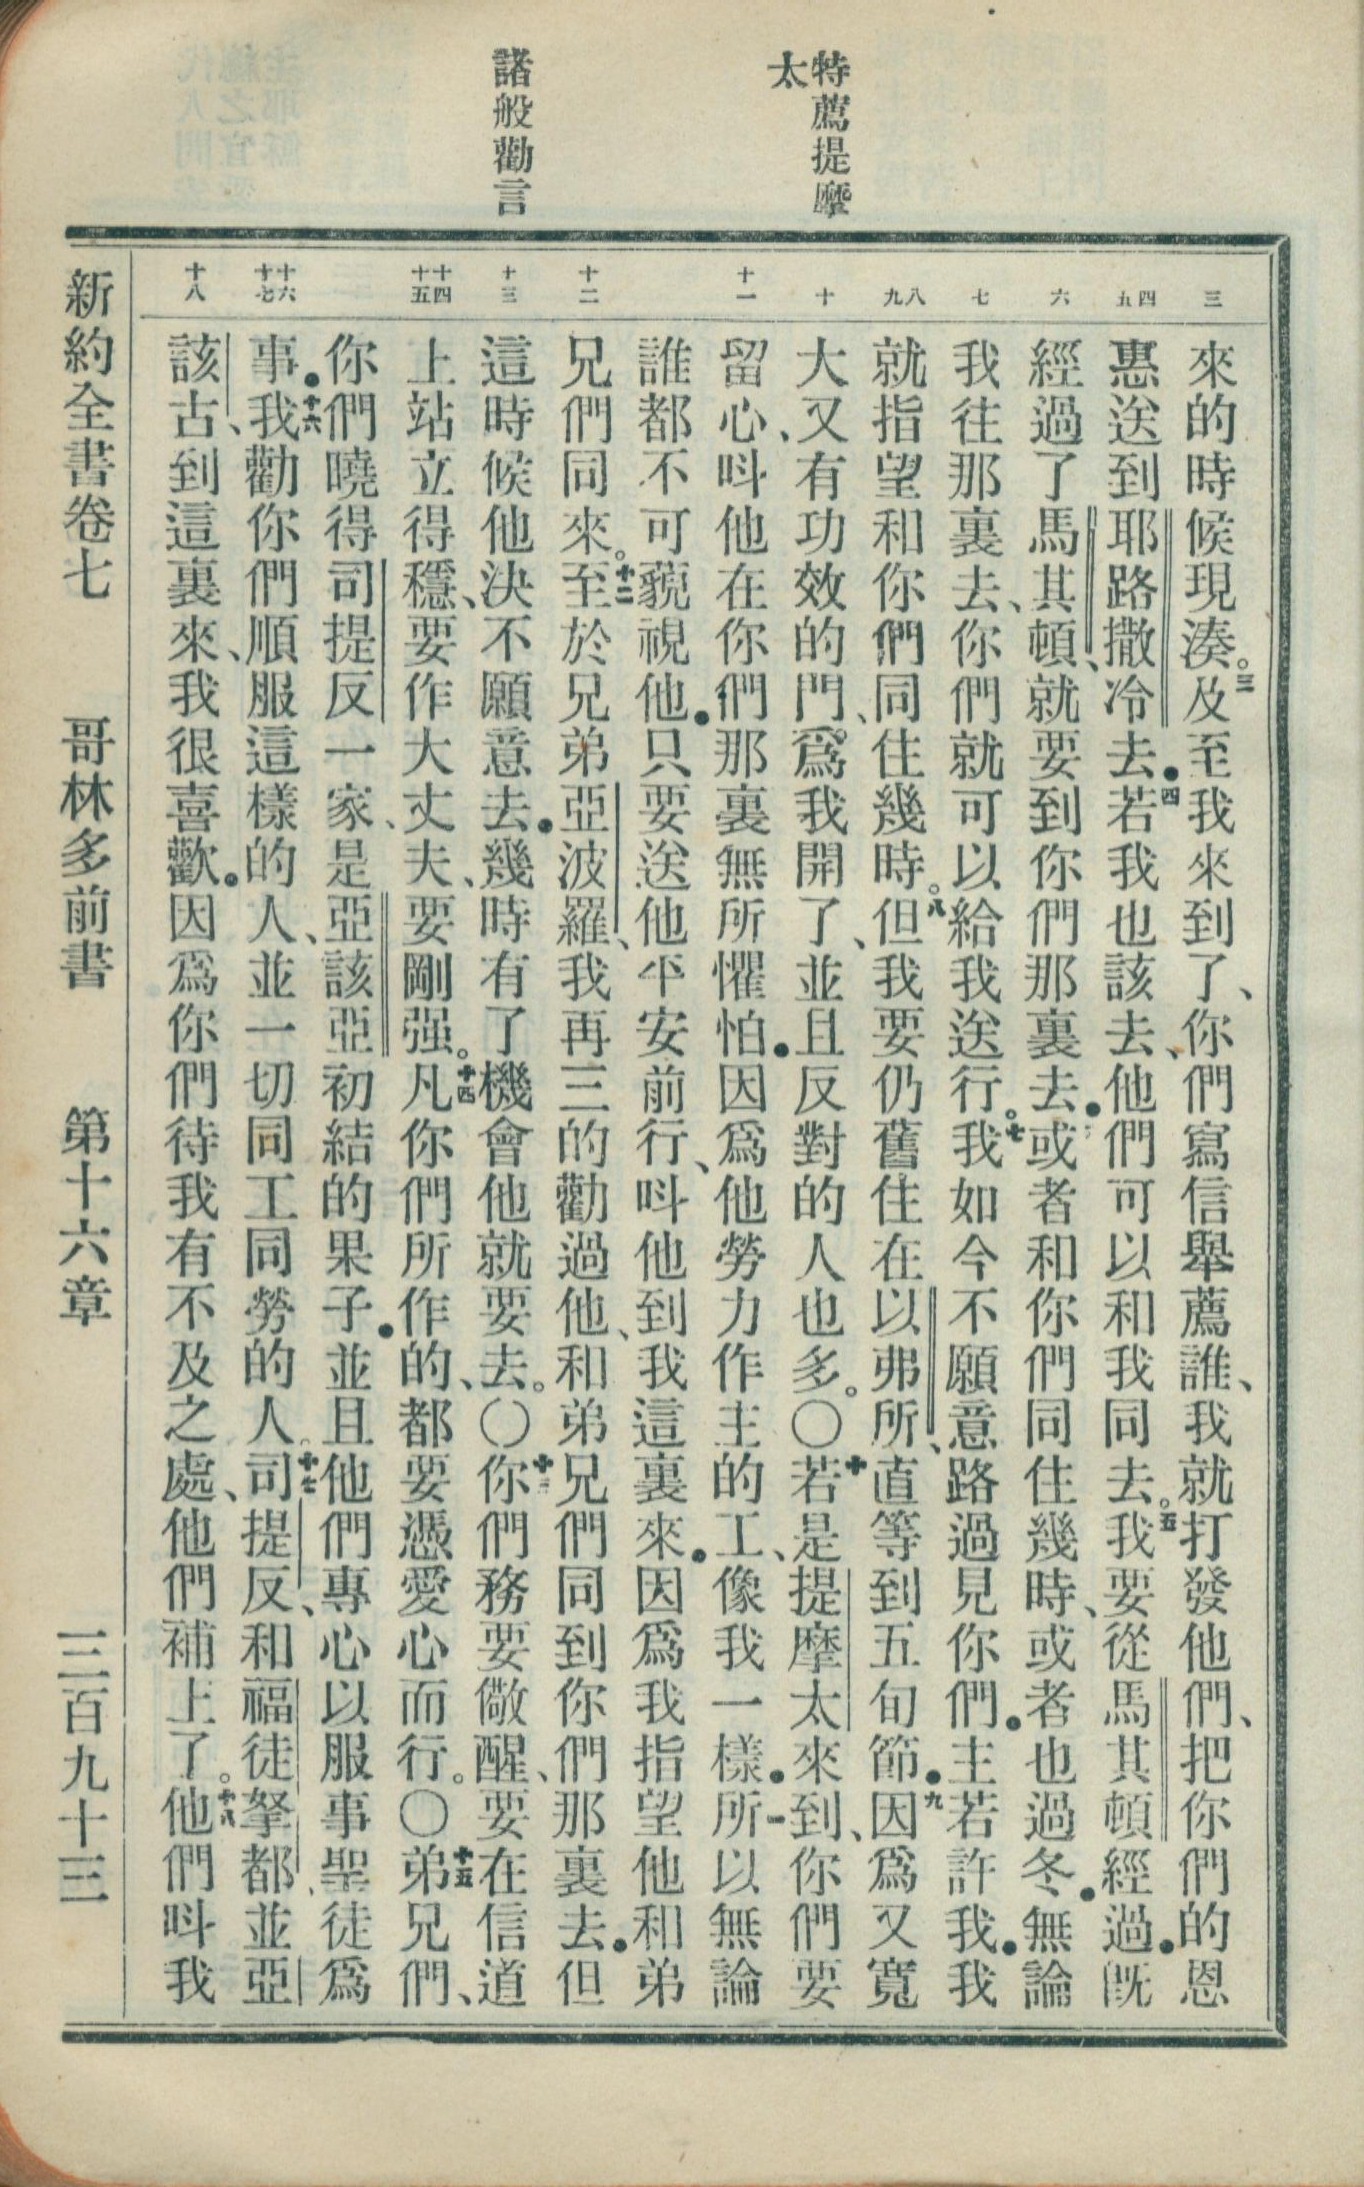 特薦提摩
太
諸般勸言
三
四 五
六
七
八 九
十
十一
十二
十三
十四 十五
十六 十七
十八
來的時候現湊。三及至我來到了、你們寫信舉薦誰、我就打發他們、把你們的恩
惠送到耶路撒冷去．四若我也該去、他們可以和我同去。五我要從馬其頓經過．旣
經過了馬其頓、就要到你們那裏去．六或者和你們同住幾時、或者也過冬．無論
我往那裏去、你們就可以給我送行。七我如今不願意路過見你們．主若許我．我
就指望和你們同住幾時。八但我要仍舊住在以弗所、直等到五旬節．九因爲又寬
大、又有功效的門、爲我開了、並且反對的人也多。〇十若是提摩太來到、你們要
留心、呌他在你們那裏無所懼怕．因爲他勞力作主的工、像我一樣．十一所以無論
誰都不可藐視他．只要送他平安前行、呌他到我這裏來．因爲我指望他和弟
兄們同來。十二至於兄弟亞波羅、我再三的勸過他、和弟兄們同到你們那裏去．但
這時候他決不願意去．幾時有了機會他就要去。〇十三你們務要儆醒、要在信道
上站立得穩、要作大丈夫、要剛强。十四凡你們所作的、都要憑愛心而行。〇十五弟兄們、
你們曉得司提反一家、是亞該亞初結的果子．並且他們專心以服事聖徒爲
事．十六我勸你們順服這樣的人、並一切同工同勞的人。十七司提反、和福徒拏都、並亞
該古、到這裏來、我很喜歡．因爲你們待我有不及之處、他們補上了。十八他們呌我
新約全書卷七 哥林多前書 第十六章 三百九十三